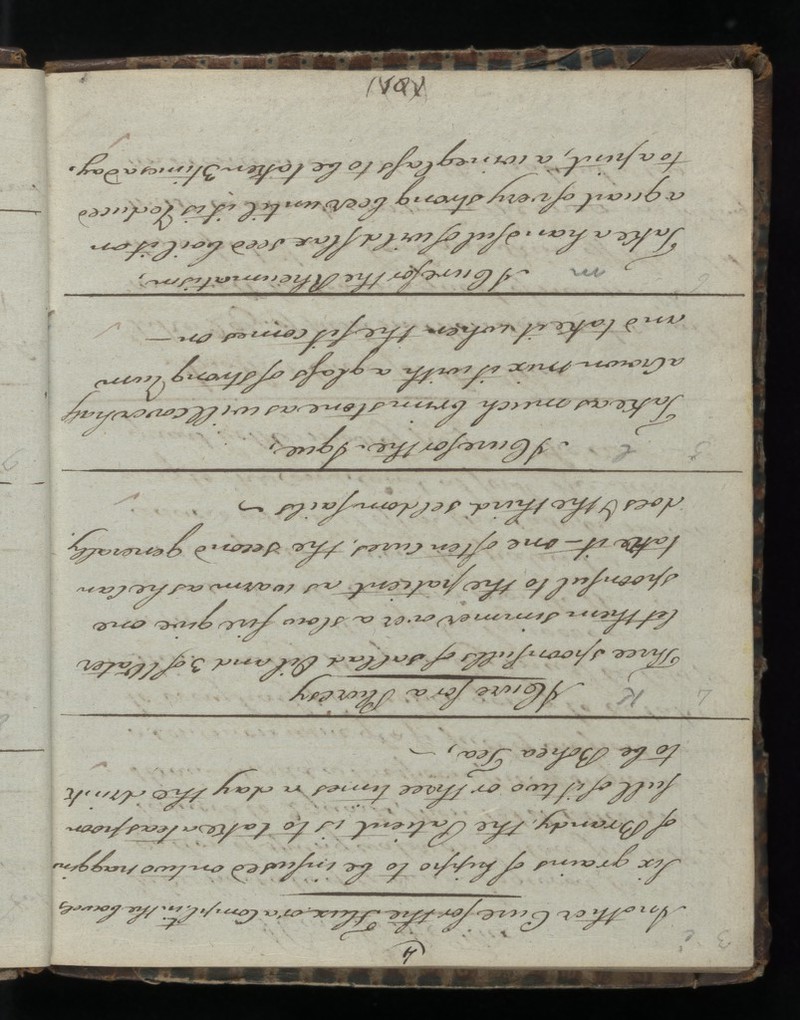 4
Another Cure for the Flux or a Compt. in the bowels
Six grains of hippo to be infused on two naggin
of Brandy, the Patient is to take a teaspoon
full of it two or three times a day the drink
to be Bohea Tea, ~
A Cure for a Pluresy
Three spoonfulls of sallad Oil and 3 of Water
let them simmer over a slow fire give one
spoonful to the patient as warm as he can
take it - one often cures, the second generally
does & the third seldom fails ~
A Cure for the Ague,
Take as much brimstone as will cover half
a Crown mix it with a glass of strong rum
and take it when the fit comes on —
A Cure for the Rheumatism,
Take a handful of wild flax seed boil it on
a quart of very strong beer until it is reduced
to a pint, a wine glass to be taken 3 times a day.